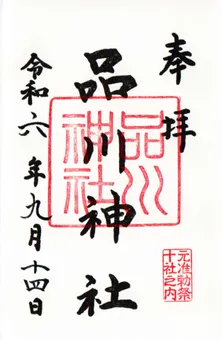 奉拝
品川神社
品川神社
元准勅祭
十社之内
令和六年九月十四日